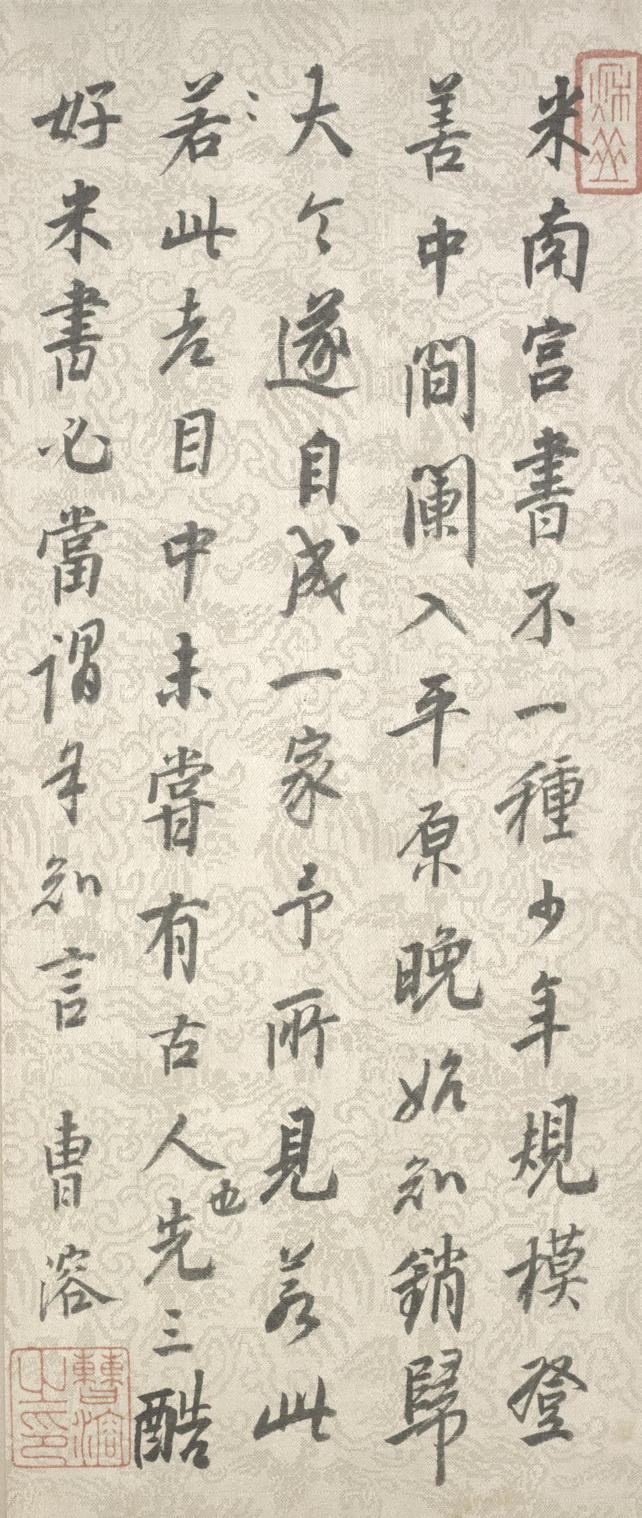 米南宫書不一種少年規模登
善中間闌入平原晚始知銷歸
大令遂自成一家予所見若此
若此老目中未嘗有古人也先三酷
好米書必當謂予知言 曹溶
曹溶之印